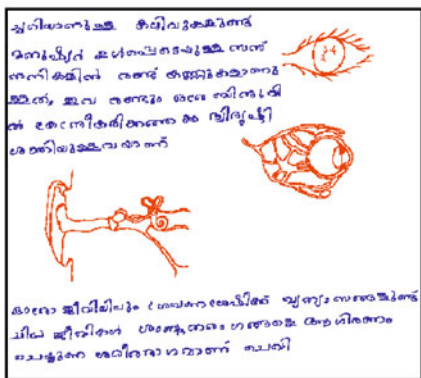 ച്ചറിയാനുള്ള കഴിവുകളുണ്ട്
മനുഷ്യർ ഉൾപ്പെടെയുള്ള സസ്
തനികളിൽ രണ്ട് കണ്ണുകളാണു
ള്ളത്, ഇവ രണ്ടും ഒരേ ബിന്ദുവി
ൽ കേന്ദ്രീകരിക്കത്തക്ക ദ്വിദൃഷ്ടി
ശക്തിയുള്ളവയാണ്
ഓരോ ജീവിയിലും ശ്രവണശേഷിക്ക് വ്യത്യാസങ്ങളുണ്ട്
ചില ജീവികൾ ശബ്ദതരംഗങ്ങളെ ആഗിരണം
ചെയ്യുന്ന ശരീരഭാഗമാണ് ചെവി